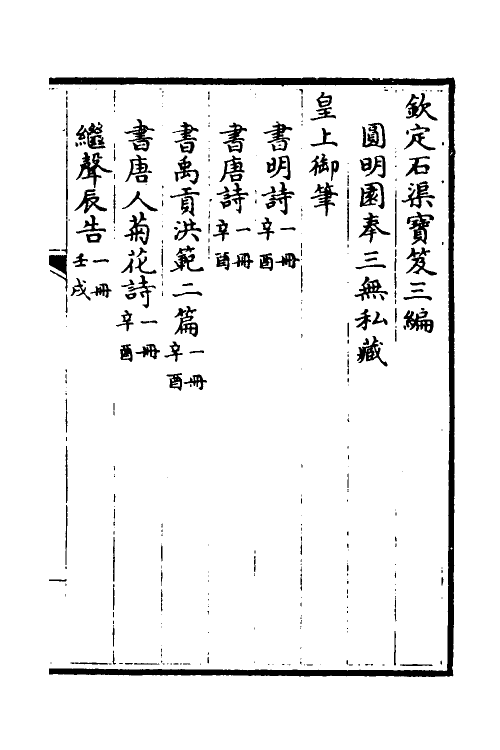 欽定石渠寶笈三編
圓明園奉三無私藏
皇上御筆
書明詩一冊辛酉
書唐詩一冊辛酉
書禹貢洪範二篇一冊辛酉
書唐人菊花詩一冊辛酉
繼聲辰告一冊壬戌